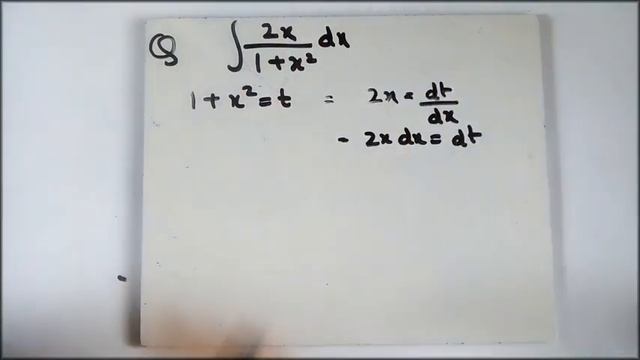 Q ∫ 2x/(1+x²) dx
1+x²=t = 2x = dt/dx
- 2x dx = dt